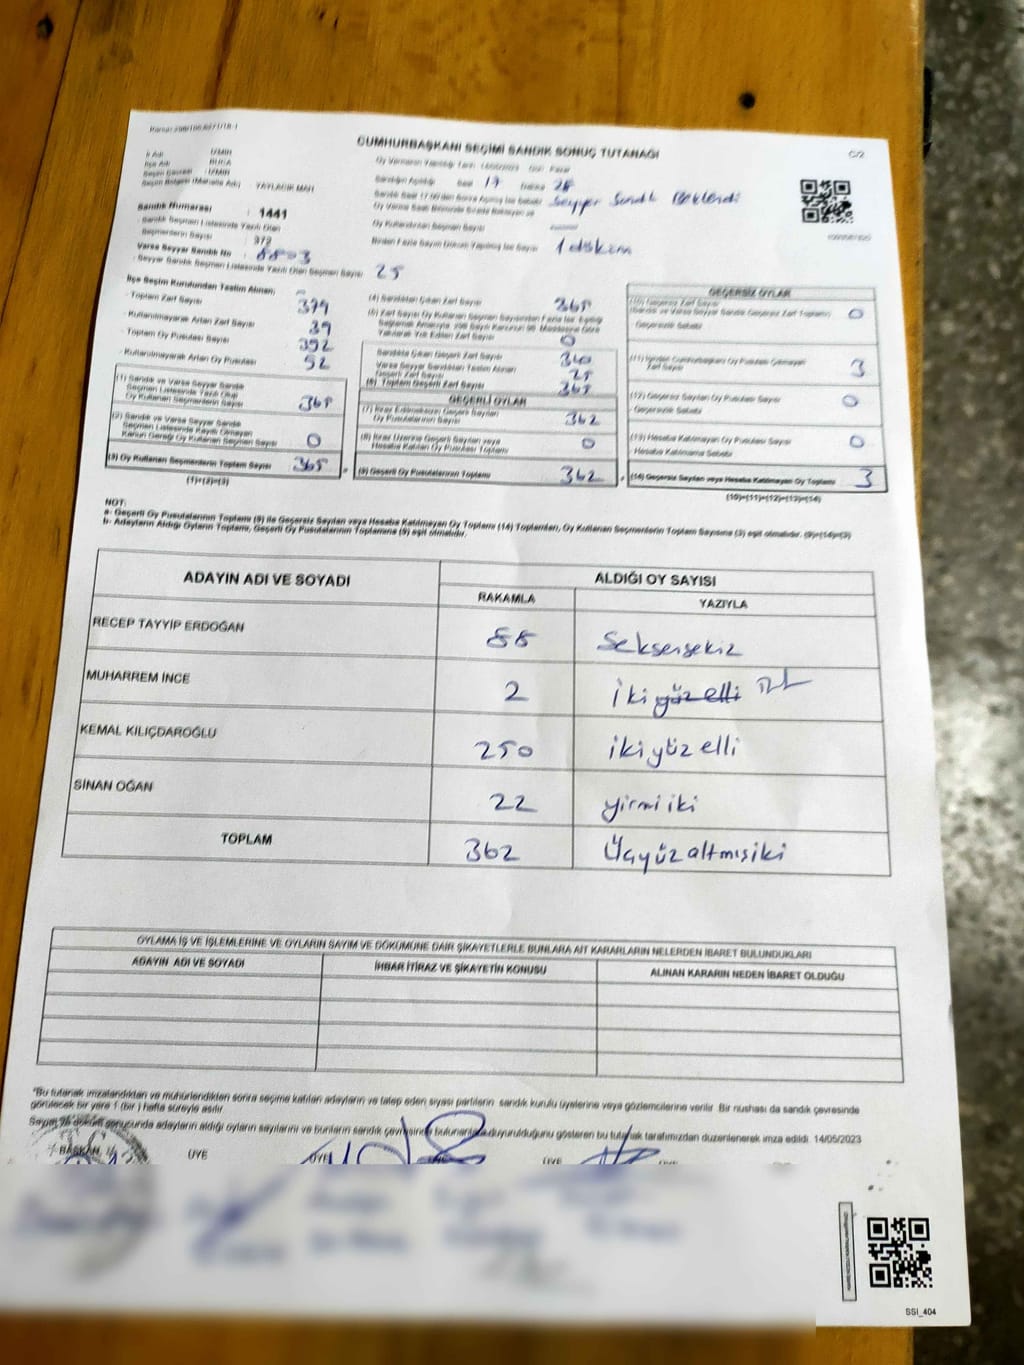 CUMHURBAŞKANI SEÇİMİ SANDIK SONUÇ TUTANAĞI
C/2
İl Adı : İZMİR
İlçe Adı : BUCA
Seçim Çevresi : İZMİR
Seçim Bölgesi (Mahalle Adı) : YAYLACIK MAH
Sandık Numarası : 1441
Sandık Seçmen Listesinde Yazılı Olan
Seçmenlerin Sayısı : 372
Varsa Seyyar Sandık No :
Seyyar Sandık Seçmen Listesinde Yazılı Olan Seçmen Sayısı : 25
Sandığın Açıldığı Saat 17 Dakika 28
Seyyar Sandık Beklendi
Oy Kullandırılan Seçmen Sayısı
Birden Fazla Sayım Döküm Yapılmış İse Sayısı 1 döküm
İlçe Seçim Kurulundan Teslim Alınan;
- Toplam Zarf Sayısı
- Kullanılmayarak Artan Zarf Sayısı
- Toplam Oy Pusulası Sayısı
- Kullanılmayarak Artan Oy Pusulası 52
(1) Sandık ve Varsa Seyyar Sandık
Seçmen Listesinde Yazılı Olup
Oy Kullanan Seçmenlerin Sayısı 365
(2) Sandık ve Varsa Seyyar Sandık
Seçmen Listesinde Kayıtlı Olmayan
Kanun Gereği Oy Kullanan Seçmen Sayısı 0
(3) Oy Kullanan Seçmenlerin Toplam Sayısı 365
(1)+(2)=(3)
(4) Sandıktan Çıkan Zarf Sayısı 365
(5) Zarf Sayısı Oy Kullanan Seçmen Sayısından Fazla İse, Eşitliği
Sağlamak Amacıyla, 298 Sayılı Kanunun 98. Maddesine Göre
Yakılarak Yok Edilen Zarf Sayısı 0
Sandıkta Çıkan Geçerli Zarf Sayısı 340
Varsa Seyyar Sandıktan Teslim Alınan
Geçerli Zarf Sayısı 25
(6) Toplam Geçerli Zarf Sayısı 365
GEÇERLİ OYLAR
(7) İtiraz Edilmeksizin Geçerli Sayılan
Oy Pusulalarının Toplamı 362
(8) İtiraz Üzerine Geçerli Sayılan veya
Hesaba Katılan Oy Pusulası Toplamı 0
(9) Geçerli Oy Pusulalarının Toplamı 362
GEÇERSİZ OYLAR
(10) Geçersiz Zarf Sayısı
(Sandık ve Varsa Seyyar Sandık Geçersiz Zarf Toplamı) 0
- Geçersizlik Sebebi
(11) İçinden Cumhurbaşkanı Oy Pusulası Çıkmayan
Zarf Sayısı 3
(12) Geçersiz Sayılan Oy Pusulası Sayısı 0
- Geçersizlik Sebebi
(13) Hesaba Katılmayan Oy Pusulası Sayısı 0
- Hesaba Katılmama Sebebi
(14) Geçersiz Sayılan veya Hesaba Katılmayan Oy Toplamı 3
(10)+(11)+(12)+(13)=(14)
NOT:
a- Geçerli Oy Pusulalarının Toplamı (9) ile Geçersiz Sayılan veya Hesaba Katılmayan Oy Toplamı (14) Toplamları, Oy Kullanan Seçmenlerin Toplam Sayısına (3) eşit olmalıdır. (9)+(14)=(3)
b- Adayların Aldığı Oyların Toplamı, Geçerli Oy Pusulalarının Toplamına (9) eşit olmalıdır.
ADAYIN ADI VE SOYADI ALDIĞI OY SAYISI
RAKAMLA YAZIYLA
RECEP TAYYİP ERDOĞAN 88 Seksensekiz
MUHARREM İNCE 2 İki yüz elli
KEMAL KILIÇDAROĞLU 250 ikiyüz elli
SİNAN OĞAN 22 yirmi iki
TOPLAM 362 Üçyüz altmış iki
OYLAMA İŞ VE İŞLEMLERİNE VE OYLARIN SAYIM VE DÖKÜMÜNE DAİR ŞİKAYETLERLE BUNLARA AİT KARARLARIN NELERDEN İBARET BULUNDUKLARI
ADAYIN ADI VE SOYADI İHBAR İTİRAZ VE ŞİKAYETİN KONUSU ALINAN KARARIN NEDEN İBARET OLDUĞU
*Bu tutanak imzalandıktan ve mühürlendikten sonra seçime katılan adayların ve talep eden siyasi partilerin sandık kurulu üyelerine veya gözlemcilerine verilir. Bir nushası da sandık çevresinde
görülecek bir yere 1 (bir) hafta süreyle asılır.
Sayım ve döküm sonucunda adayların aldığı oyların sayılarını ve bunların sandık çevresinde bulunanlara duyurulduğunu gösteren bu tutanak tarafımızdan düzenlenerek imza edildi. 14/05/2023
BAŞKAN ÜYE ÜYE ÜYE ÜYE
SSI_404